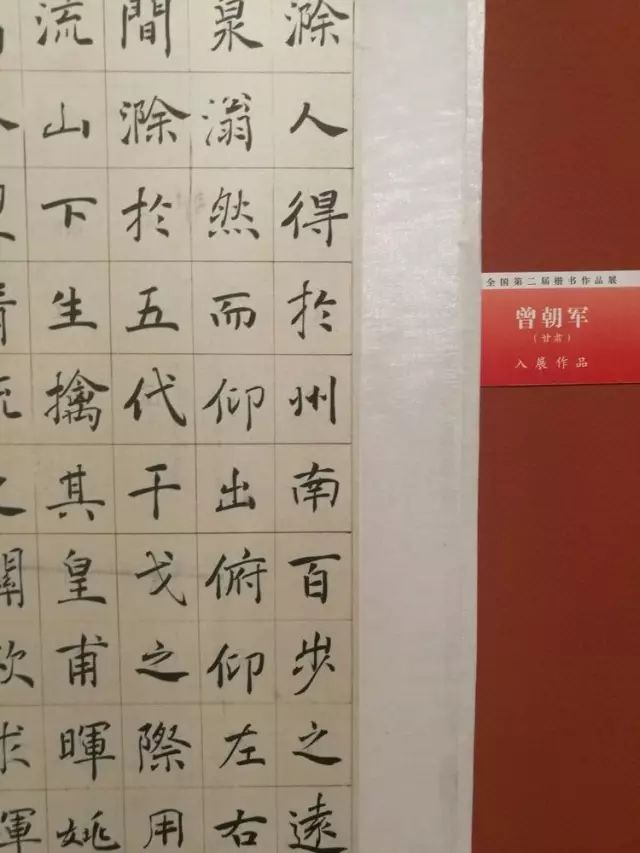 滁人得於州南百步之遠
泉滃然而仰出俯仰左右
間滁於五代干戈之際用
流山下生擒其皇甫暉姚
清流之關欲求暉
全国第二届楷书作品展
曾朝军
（甘肃）
入展作品